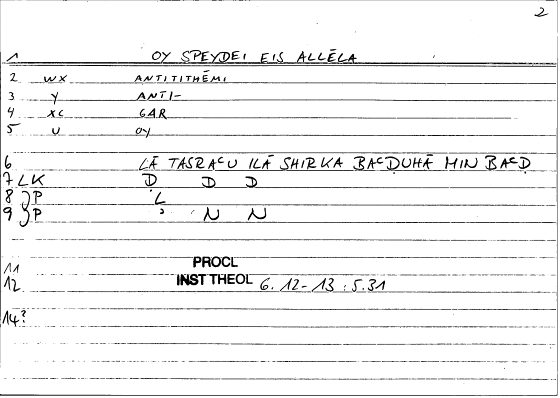 2
1 OY SPEYDEI EIS ALLĒLA
2 WX ANTITITHĒMI
3 Y ANTI-
4 XC GAR
5 U OY
6 LĀ TASRAᶜU ILĀ SHIRKA BAᶜḌUHĀ MIN BAᶜḌ
7 LK D D D
8 P L
9 P N N
11 PROCL
12 INST THEOL 6. 12-13 : 5.31
14?